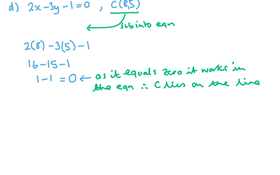 d) 2x-3y-1=0 , C(8,5)
sub into eqn
2(8)-3(5)-1
16-15-1
1-1=0 ← as it equals zero it works in
the eqn ∴ C lies on the line